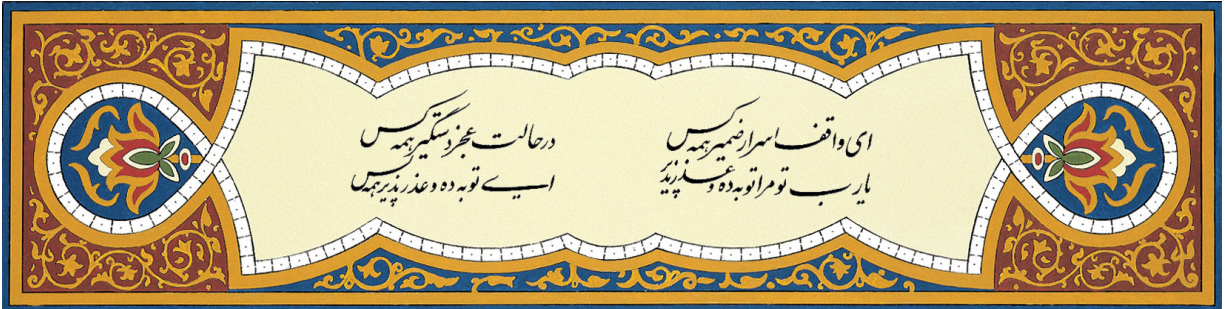 ای واقف اسرار ضمیر همه کس در حالت عجز دستگیر همه کس
یا رب تو مرا توبه ده و عذر پذیر ای توبه ده و عذر پذیر همه کس